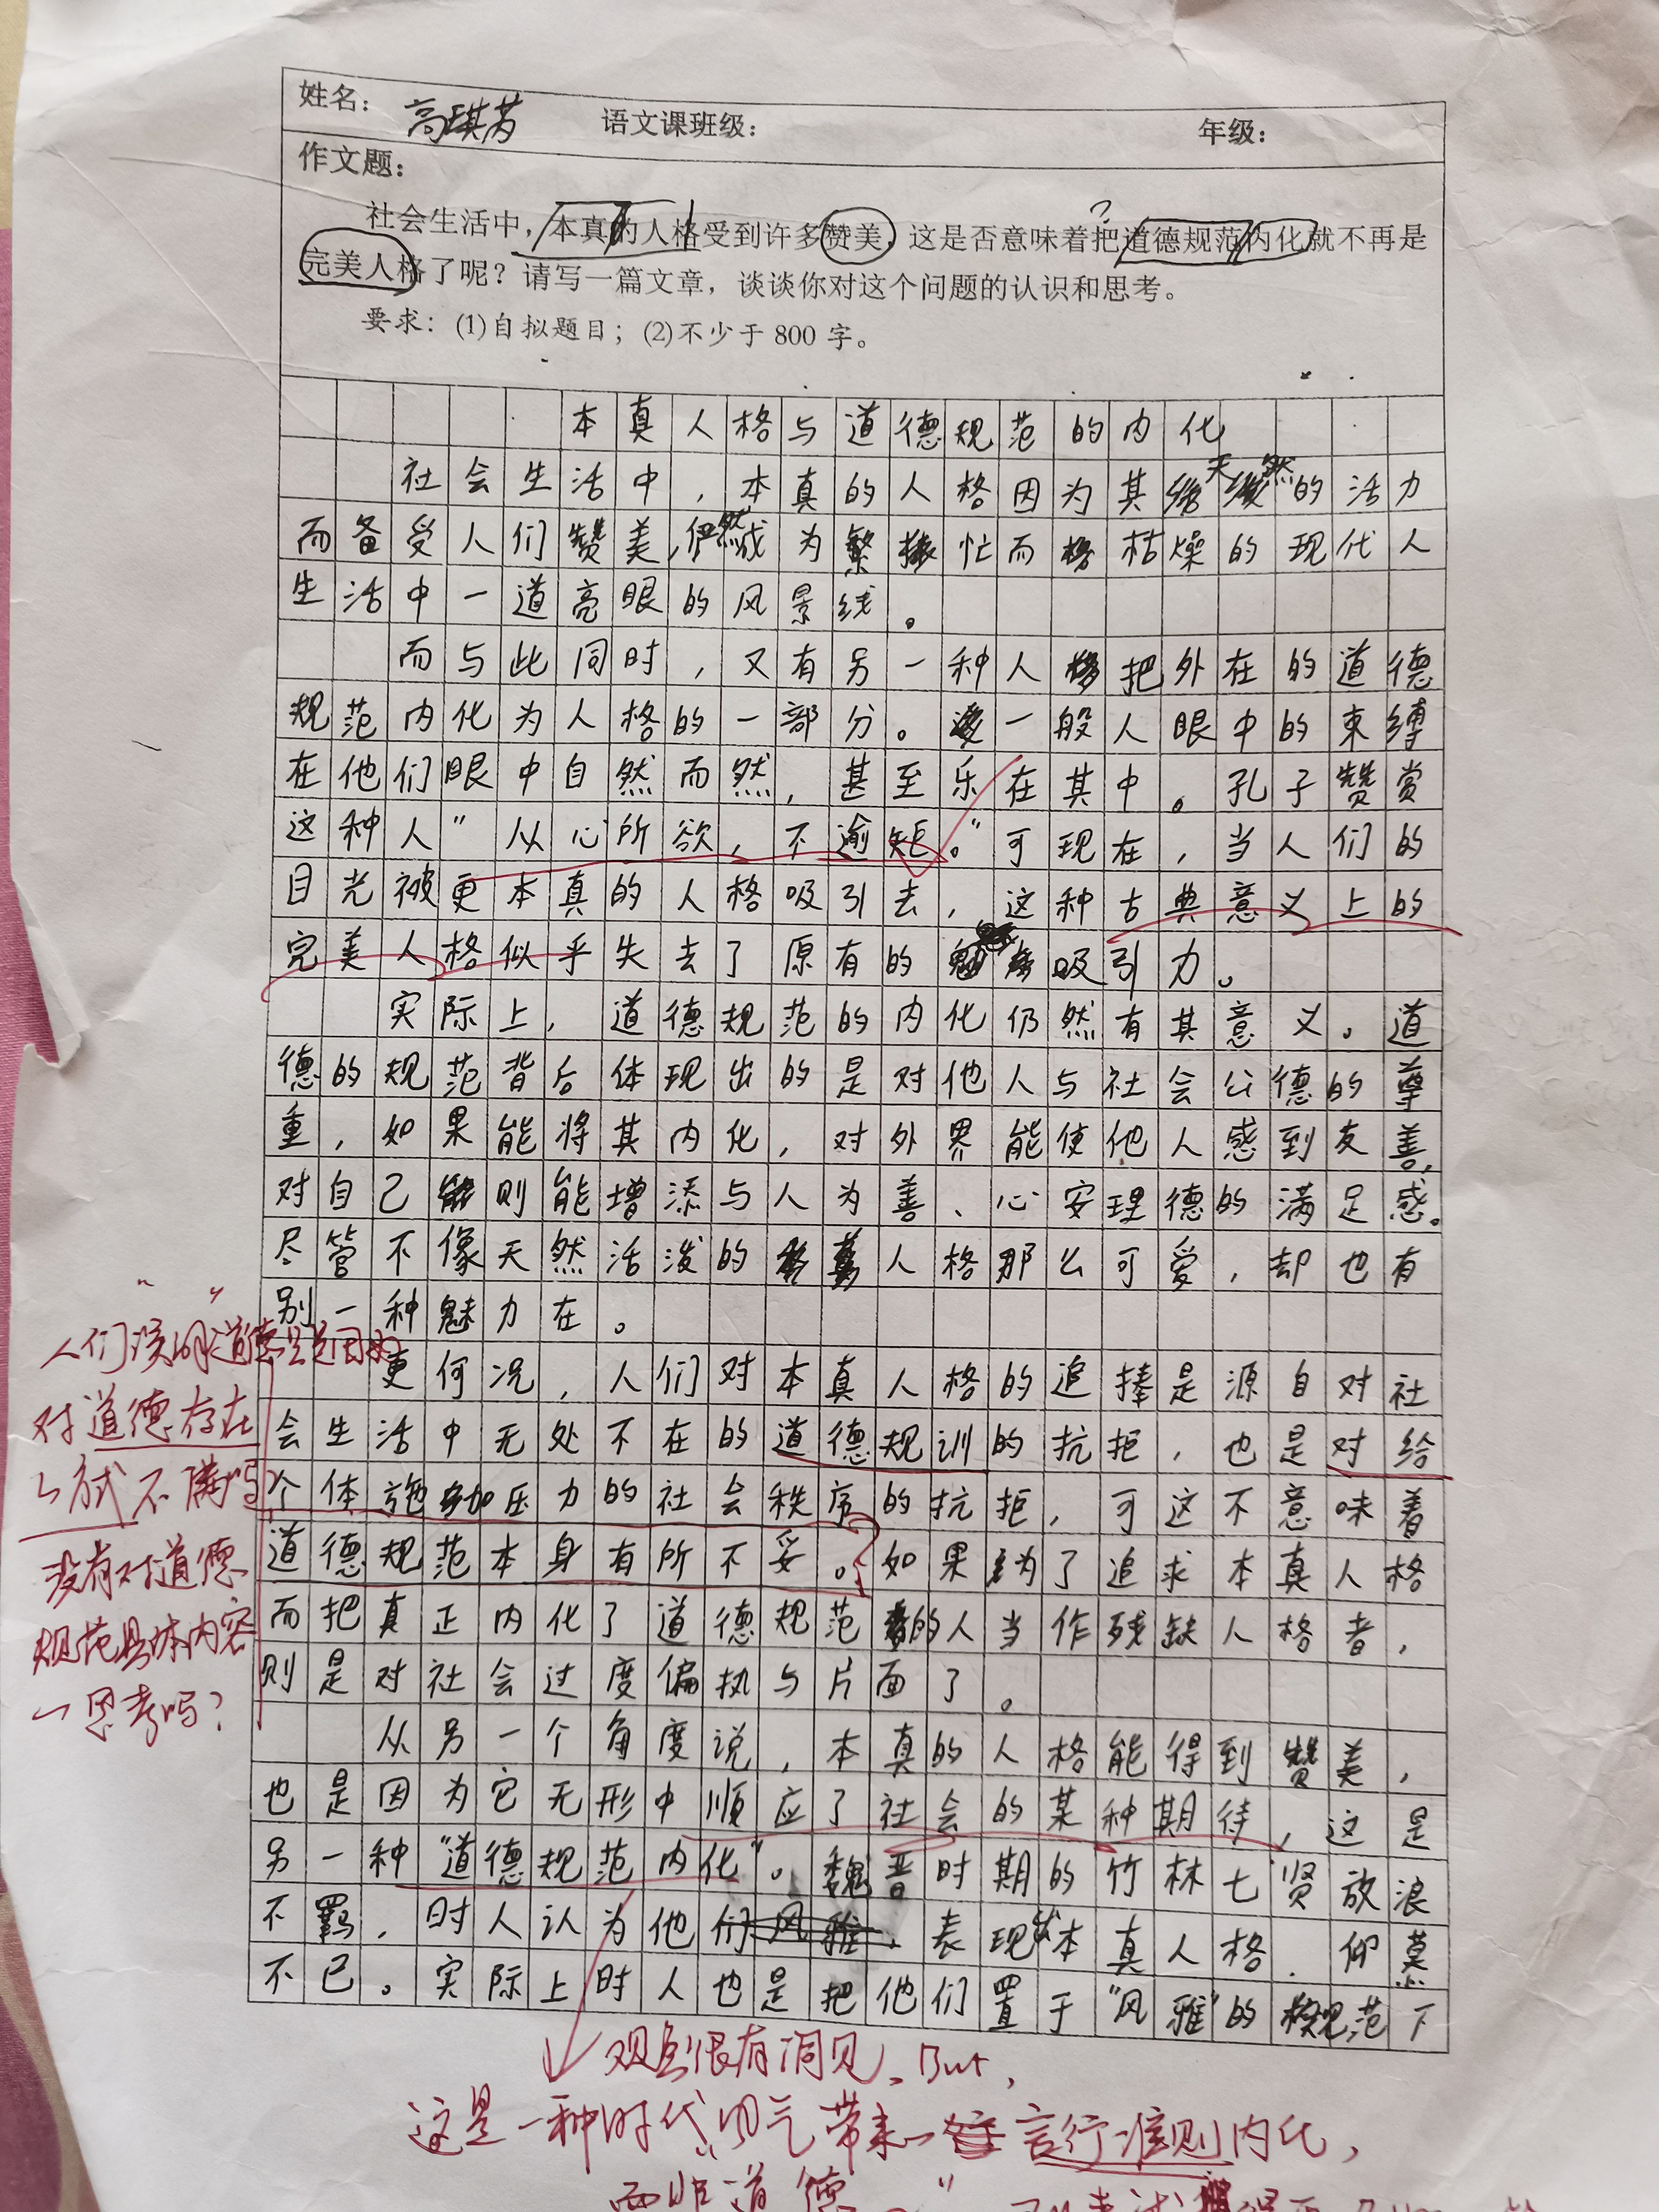 姓名： 高琪芮 语文课班级： 年级：
作文题：
社会生活中，本真的人格受到许多赞美，这是否意味着把道德规范内化就不再是
完美人格了呢？请写一篇文章，谈谈你对这个问题的认识和思考。
要求：(1)自拟题目；(2)不少于 800 字。
本真人格与道德规范的内化
社会生活中，本真的人格因为其天然的活力
而备受人们赞美，俨然成为繁忙而枯燥的现代人
生活中一道亮眼的风景线。
而与此同时，又有另一种人把外在的道德
规范内化为人格的一部分。一般人眼中的束缚
在他们眼中自然而然，甚至乐在其中。孔子赞赏
这种人"从心所欲，不逾矩。"可现在，当人们的
目光被更本真的人格吸引去，这种古典意义上的
完美人格似乎失去了原有的吸引力。
实际上，道德规范的内化仍然有其意义。道
德的规范背后体现出的是对他人与社会公德的尊
重，如果能将其内化，对外界能使他人感到友善，
对自己则能增添与人为善、心安理德的满足感。
尽管不像天然活泼的人格那么可爱，却也有
别一种魅力在。
更何况，人们对本真人格的追捧是源自对社
会生活中无处不在的道德规训的抗拒，也是对给
个体施加压力的社会秩序的抗拒，可这不意味着
道德规范本身有所不妥。如果为了追求本真人格
而把真正内化了道德规范的人当作残缺人格者，
则是对社会过度偏执与片面了。
从另一个角度说，本真的人格能得到赞美，
也是因为它无形中顺应了社会的某种期待，这是
另一种"道德规范内化"。魏晋时期的竹林七贤放浪
不羁，时人认为他们表现出本真人格，仰慕
不已。实际上时人也是把他们置于"风雅"的规范下
对道德存在
不满吗
没有对道德
规范具体内容
思考吗？
观点很有洞见，But，
这是一种时代风气带来 言行准则内化，
而非道德